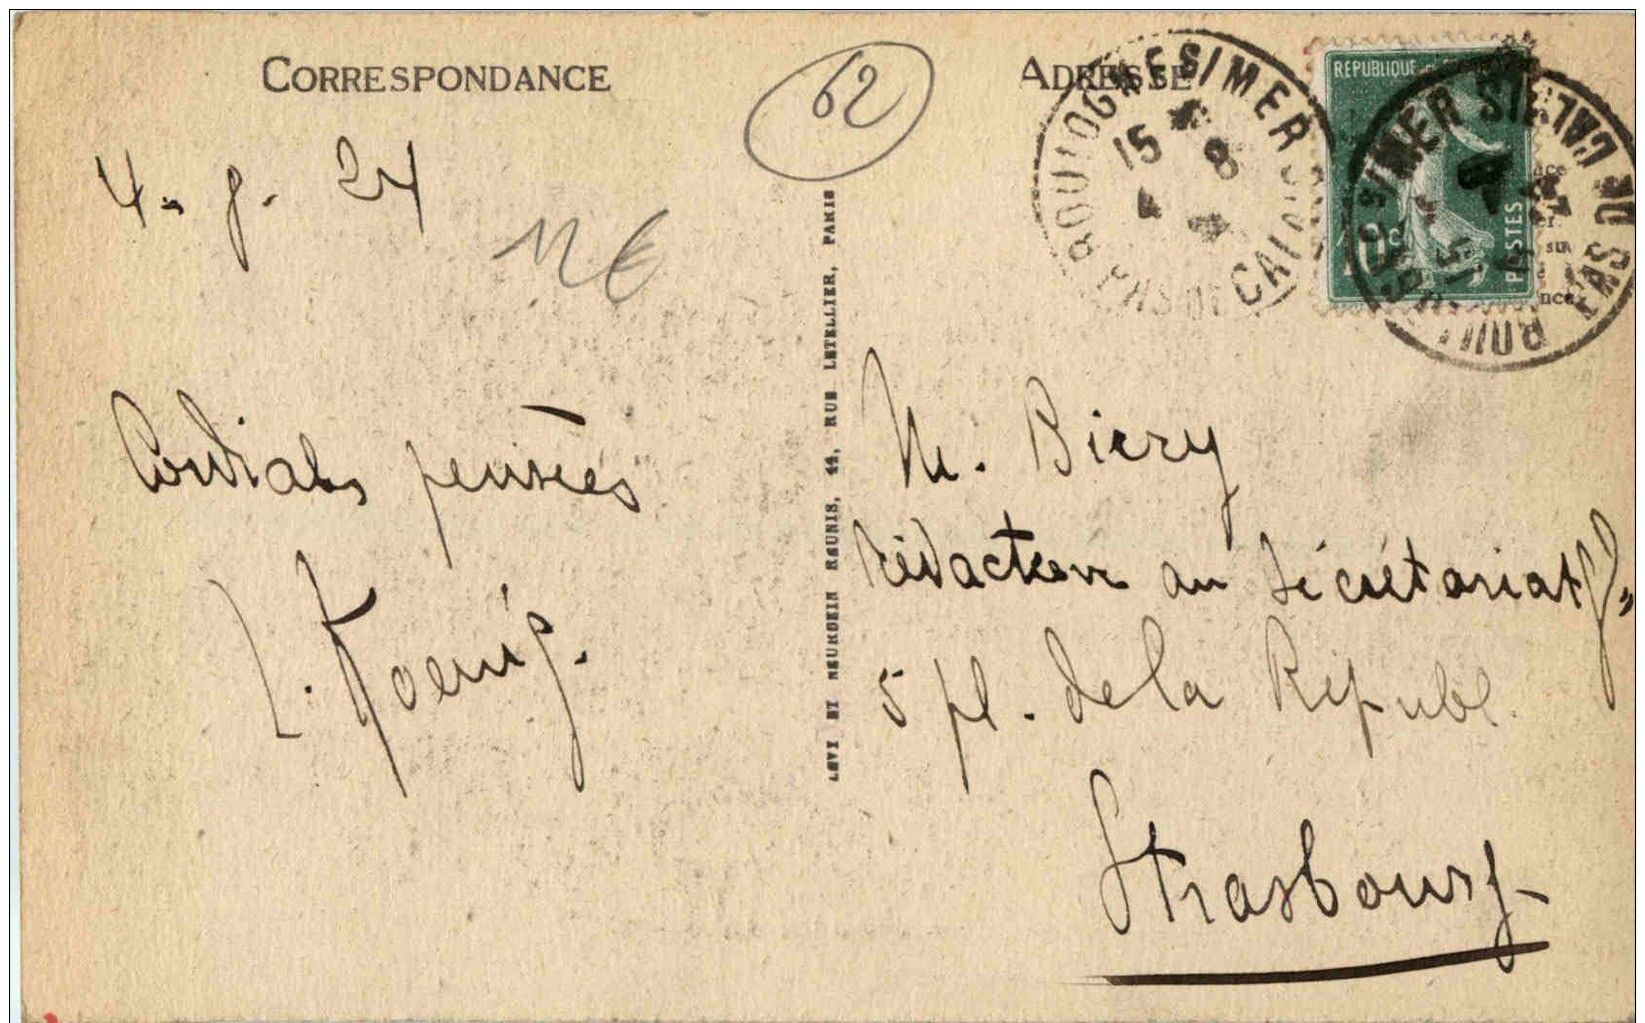 CORRESPONDANCE
62
4. 8. 24
Cordiales pensées
L. Koenig.
LEVY ET NEURDEIN REUNIS, 44, RUE LETELLIER, PARIS
ADRESSE
BOULOGNE S/MER
15
8
PAS DE CALAIS
REPUBLIQUE
10c
POSTES
S/MER
PAS DE CALAIS
M. Biery
rédacteur au Secrétariat g.
5 pl. de la Républ.
Strasbourg